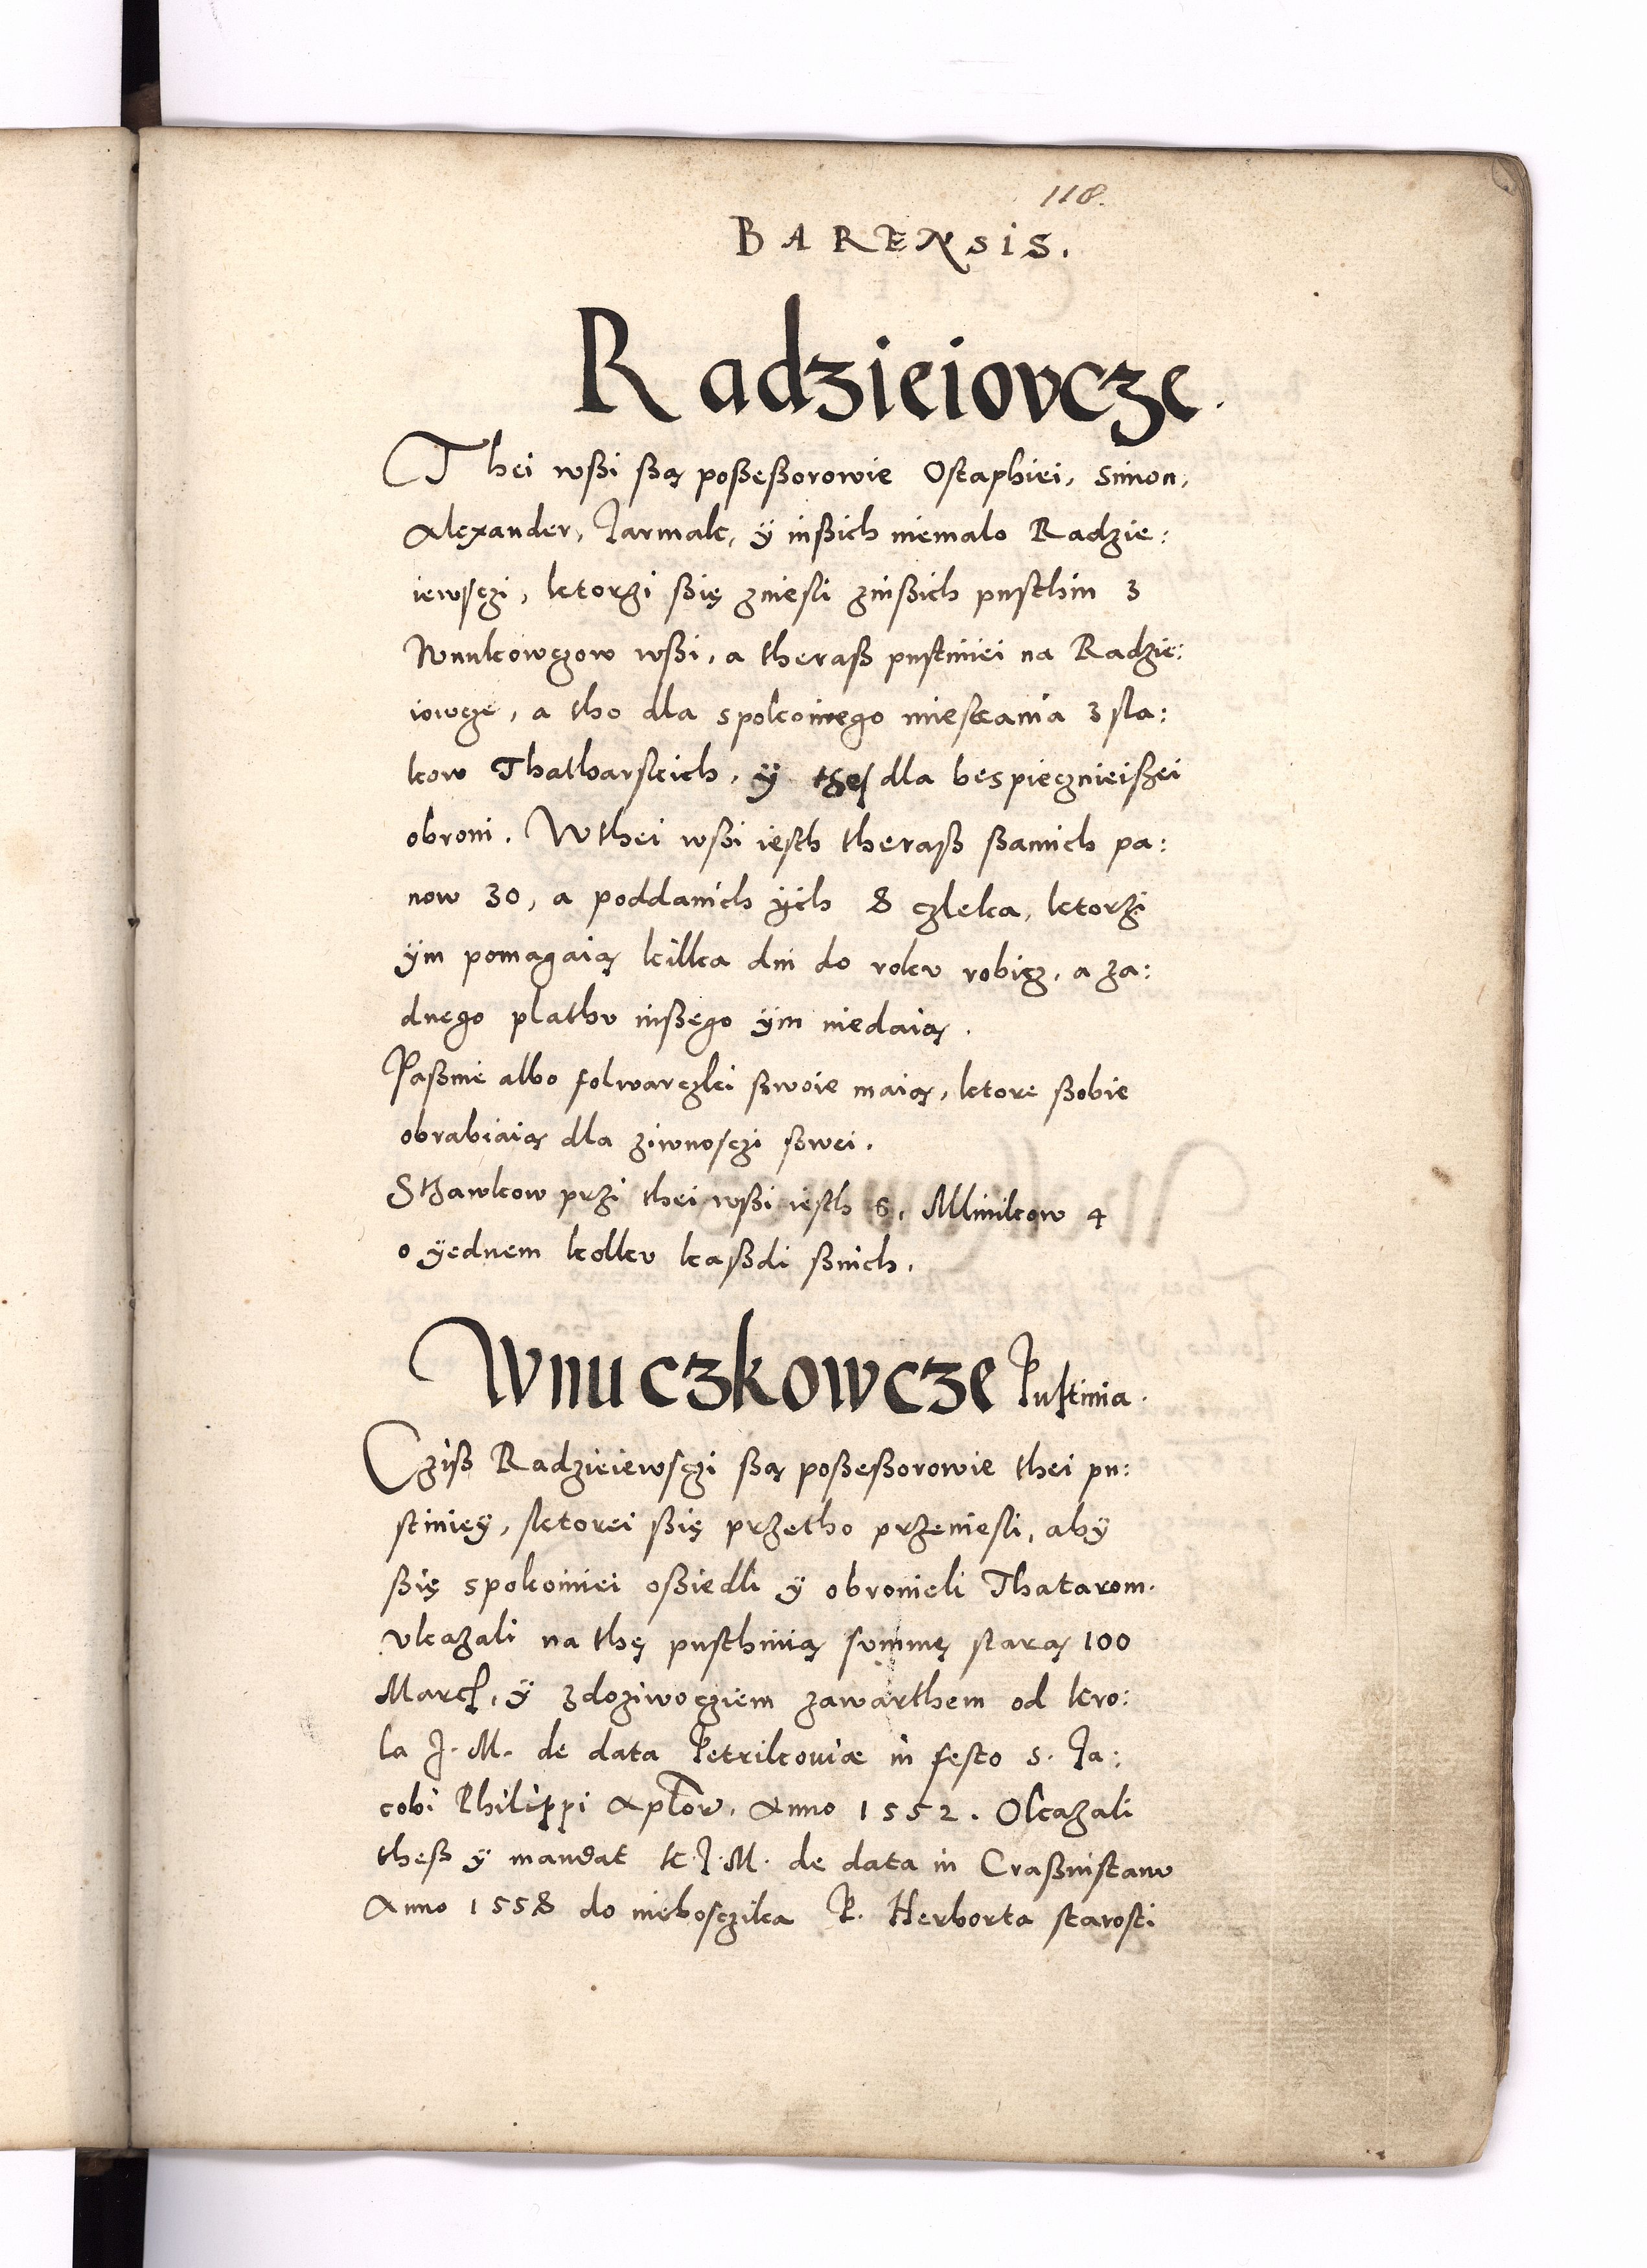 118.
BARENSIS.
Radzieiovcze.
Thei wßi ßą poßeßorowie Ostaphiei, Simon,
Alexander, Jarmak, ÿ inßich niemalo Radzie:
iewsczi, ktorzi ßię zniesli zinßich pusthin 3
Wnukowczow wßi, a theraß pustiniei na Radzie:
iowcze, a tho dla spokoinego mieskania 3 sla:
kow Thatharskich, ÿ dla bespiecznieißei
obroni. W thei wßi iesth theraß ßamich pa:
now 30, a poddanich ÿch 8 czleka, ktorzi
ÿm pomagaią kilka dni do roku robicz, a za:
dnego plathu inßego ÿm niedaią.
Paßnie albo folwarczki ßwoie maią, ktore ßobie
obrabiaią dla ziwnosczi ßwei.
Stzawkow przi thei wßi iesth 6, Mlinikow 4
o ÿednem kolku kaßdi ßnich.
Wnuczkowcze Pustinia.
Cziß Radzieiewsczi ßą poßeßorowie thei pu:
stinieÿ, sktorei ßię przetho przeniesli, abÿ
ßię spokoiniei oßiedli ÿ obronieli Thatarom.
vkazali na thę pusthinią summę starą 100
March, ÿ zdoziwocziem zawarthem od kro:
la J. M. de data Petrikouiæ in festo S. Ja:
cobi Philippi Aptor, Anno 1552. Okazali
theß ÿ mandat K. J. M. de data in Craßnistaw
Anno 1558 do nieboszika P. Herborta starosti